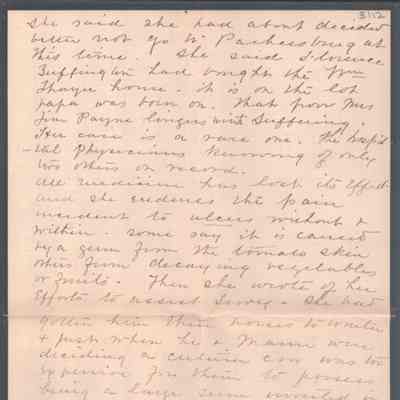 3/12
She said she had about decided
better not go to Parkersburg at
this time. She said Florence
Buffington had bought the Wm
Thayer home. it is on the lot
papa was born on. That poor Mrs
Jim Payne lingers with Suffering.
Her case is a rare one. The hospit
-al Physicians knowing of only
two others on record.
all medicine has lost its effect
and she endures the pain
incident to ulcers without &
within. some say it is caused
by a germ from the tomato skin
others from decaying vegetables
or fruits. Then she wrote of her
efforts to assist . She had
gotten him three houses to
& just when he & Mamie were
deciding a certain one was too
expensive for them to possess
being a large